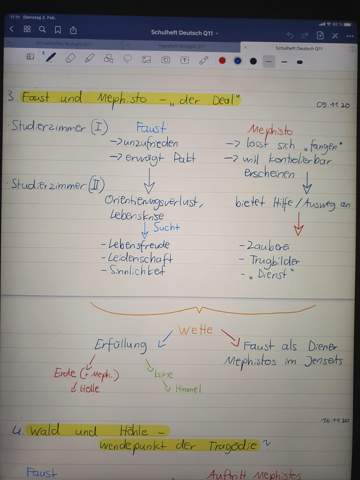 11:16 Dienstag 2. Feb.
Schulheft Deutsch Q11
Schulheft Deutsch Q11
3. Faust und Mephisto - „der Deal"
09.11.20
Studierzimmer (I)
Faust
→ unzufrieden
→ erwägt Pakt
Mephisto
→ lässt sich „fangen"
→ will kontrollierbar
erscheinen
Studierzimmer (II)
Orientierungsverlust,
Lebenskrise
bietet Hilfe / Ausweg an
Sucht
- Lebensfreude
- Leidenschaft
- Sinnlichkeit
- Zauberei
- Trugbilder
- „Dienst"
Wette
Erfüllung
Faust als Diener
Mephistos im Jenseits
Erde (+ Meph.)
Hölle
Himmel
4. Wald und Höhle -
Wendepunkt der Tragödie?
Faust
Auftritt Mephistos